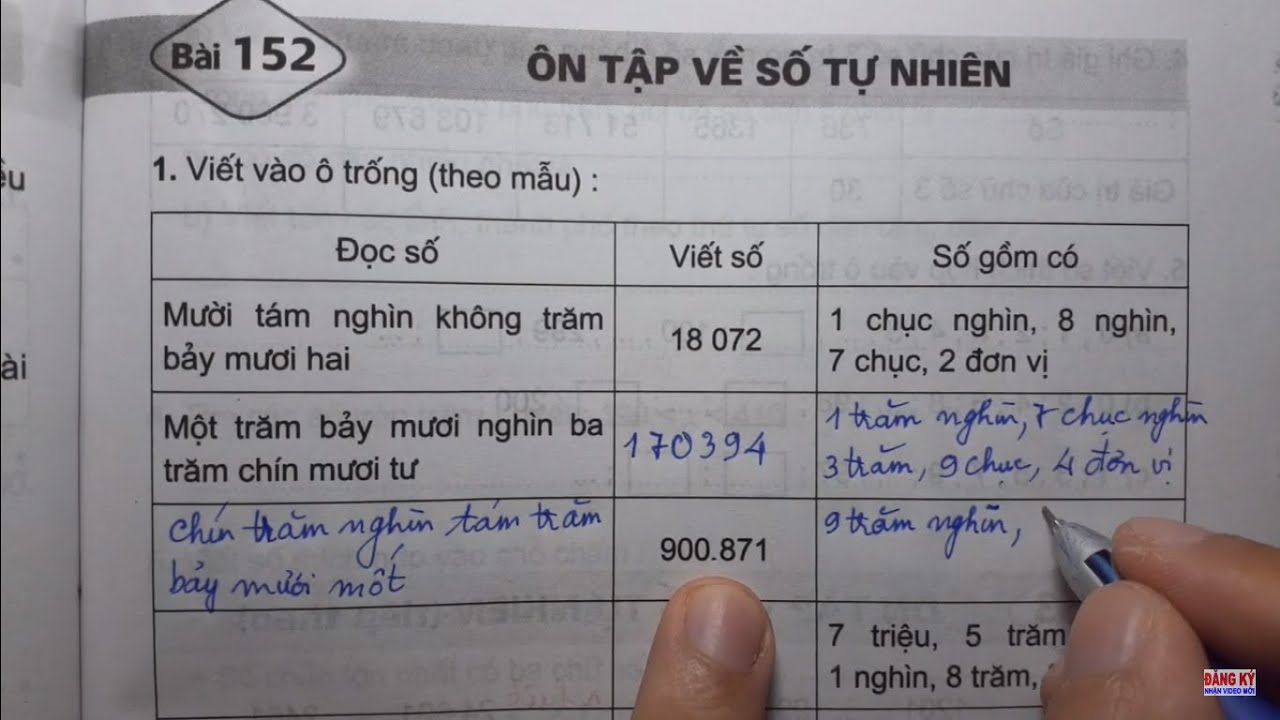 Bài 152
ÔN TẬP VỀ SỐ TỰ NHIÊN
1. Viết vào ô trống (theo mẫu) :
Đọc số
Viết số
Số gồm có
Mười tám nghìn không trăm
bảy mươi hai
18 072
1 chục nghìn, 8 nghìn,
7 chục, 2 đơn vị
Một trăm bảy mươi nghìn ba
trăm chín mươi tư
170394
1 trăm nghìn, 7 chục nghìn
3 trăm, 9 chục, 4 đơn vị
chín trăm nghìn tám trăm
bảy mươi mốt
900.871
9 trăm nghìn,
7 triệu, 5 trăm
1 nghìn, 8 trăm,
ài
ĐĂNG KÝ
NHẬN VIDEO MỚI